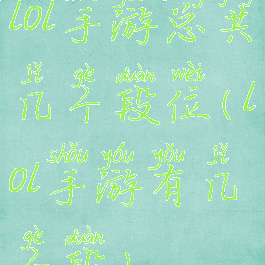 lol手游总共
jǐ gè duàn wèi
几个段位(l
shǒu yóu yǒu jǐ
ol手游有几
gè duàn
个段)